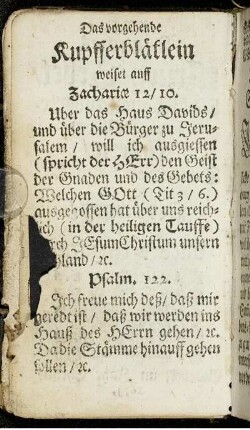 Das vorgehende
Kupfferblätlein
weiset auff
Zachariæ 12/10.
Uber das Haus Davids/
und über die Bürger zu Jeru-
salem/ will ich ausgiessen
(spricht der HErr) den Geist
der Gnaden und des Gebets:
Welchen GOtt (Tit 3/6.)
ausgegossen hat über uns reich-
lich (in der heiligen Tauffe)
durch JEsum Christum unsern
hland/ ꝛc.
Psalm. 122.
Ich freue mich deß/ daß mir
geredt ist/ daß wir werden ins
Hauß des HErrn gehen/ ꝛc.
Da die Stämme hinauff gehen
sollen/ ꝛc.